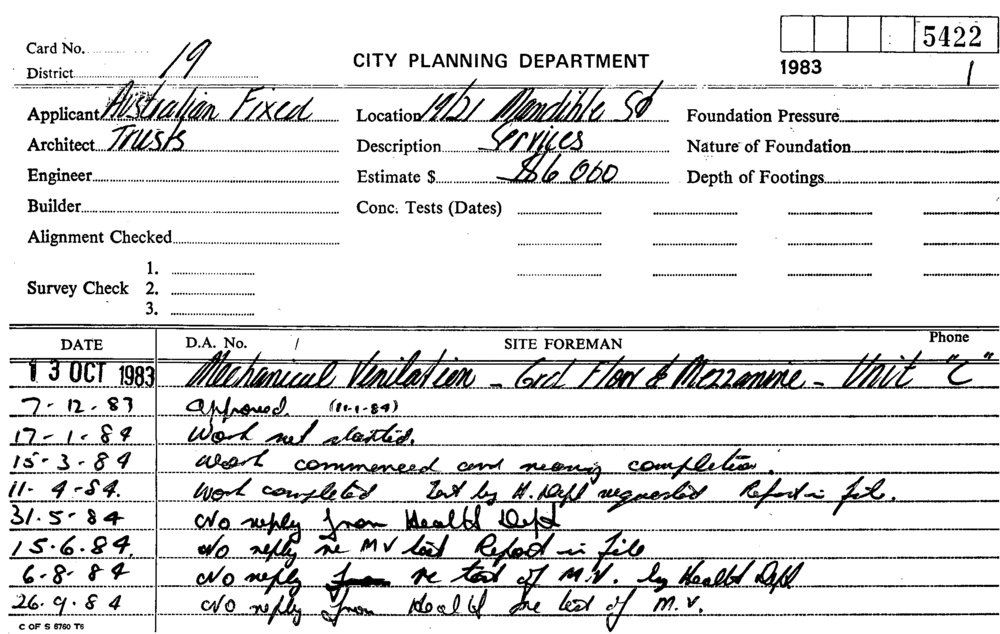 5422
Card No.
District
19
CITY PLANNING DEPARTMENT
1983
1
Applicant Australian Fixed
Location 19/21 Mandible St
Foundation Pressure
Architect Trusts
Description Services
Nature of Foundation
Engineer
Estimate $ $6 000
Depth of Footings
Builder
Conc. Tests (Dates)
Alignment Checked
1.
Survey Check 2.
3.
DATE D.A. No. SITE FOREMAN Phone
13 OCT 1983 Mechanical Venilation - Grd Floor & Mezzanine - Unit "C"
7-12-83 approved. (11-1-84)
17-1-84 Work not started.
15-3-84 Work commenced and nearing completion.
11-4-84. Work completed Test by H. Dept requested Report in file.
31.5-84 No reply from Health Dept
15.6.84. No reply re MV test Report in file
6-8-84 No reply re test of M.V. by Health Dept
26.9.84 No reply from Health re test of M.V.
C OF S 6760 T6